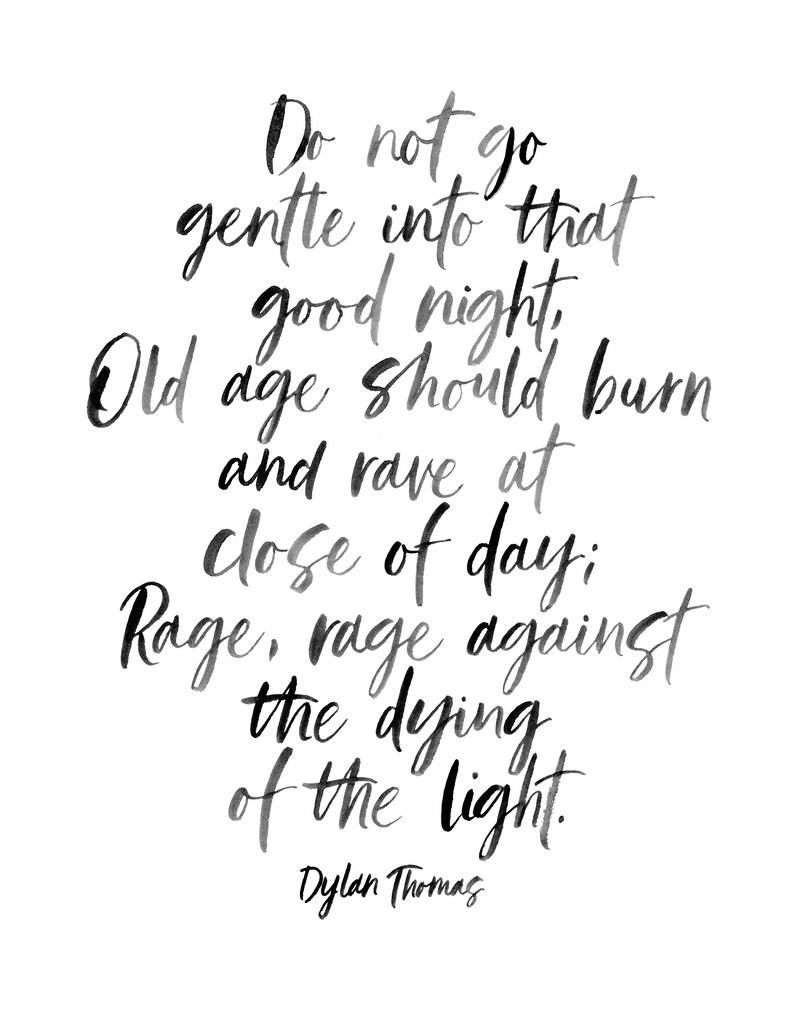 Do not go
gentle into that
good night,
Old age should burn
and rave at
close of day;
Rage, rage against
the dying
of the light.
Dylan Thomas